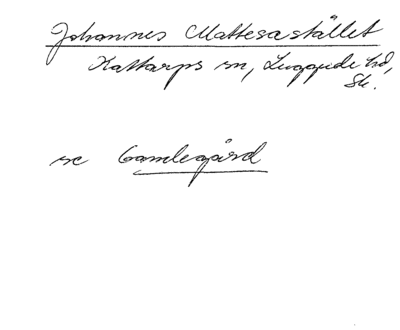 Johannes Mattesastället
Kattarps sn, Luggude hd,
Sk.
se Gamlegård